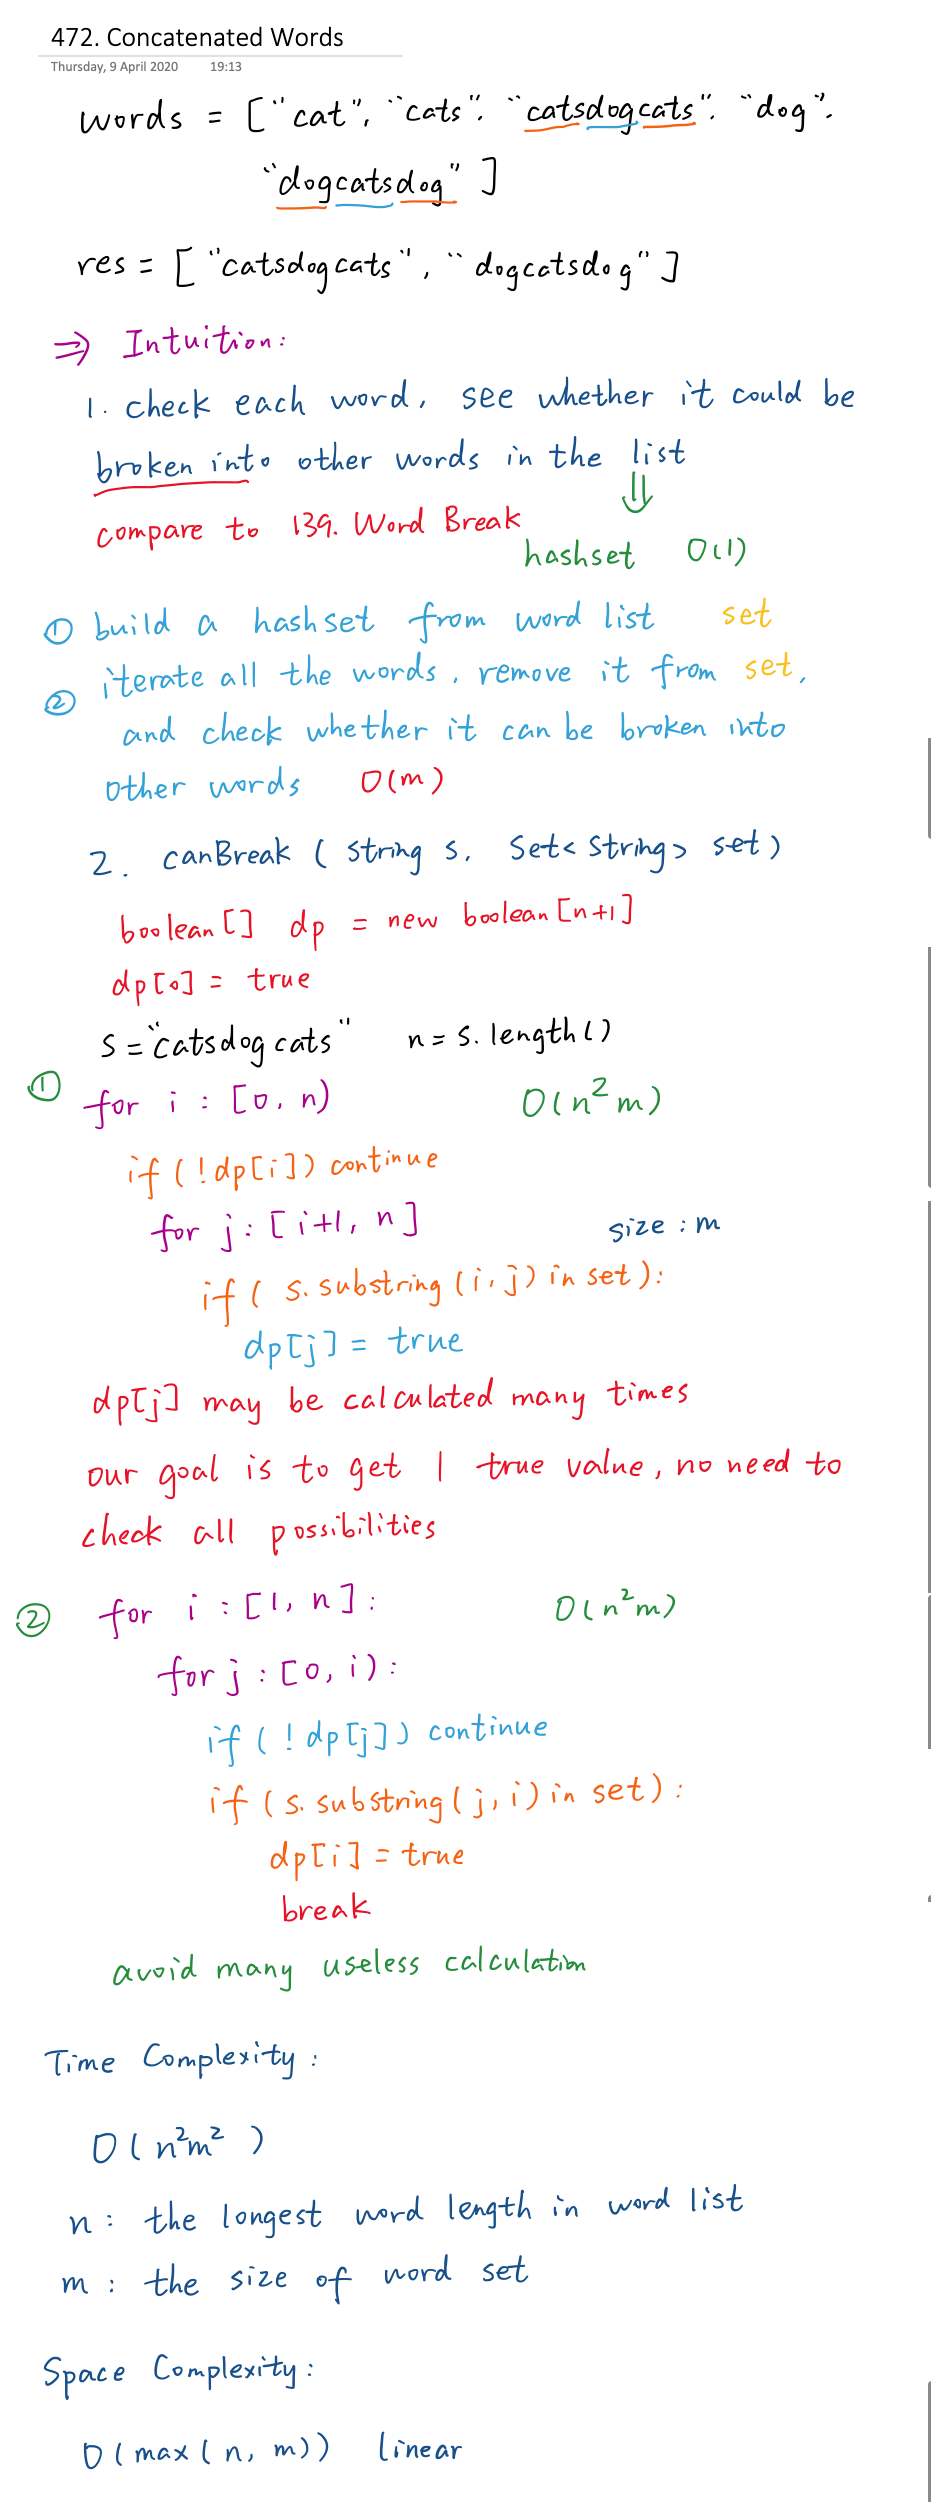 472. Concatenated Words
Thursday, 9 April 2020 19:13
words = ["cat", "cats", "catsdogcats", "dog",
"dogcatsdog"]
res = ["catsdogcats", "dogcatsdog"]
⇒ Intuition:
1. check each word, see whether it could be
broken into other words in the list
compare to 139. Word Break
hashset O(1)
① build a hashset from word list set
② iterate all the words, remove it from set,
and check whether it can be broken into
other words O(m)
2. canBreak (string s, Set<String> set)
boolean[] dp = new boolean[n+1]
dp[0] = true
s = "catsdogcats" n = s.length()
① for i : [0, n) O(n²m)
if (!dp[i]) continue
for j : [i+1, n] size : m
if ( s.substring (i, j) in set ):
dp[j] = true
dp[j] may be calculated many times
our goal is to get 1 true value, no need to
check all possibilities
② for i : [1, n] : O(n²m)
for j : [0, i) :
if ( ! dp[j]) continue
if (s.substring(j, i) in set) :
dp[i] = true
break
avoid many useless calculation
Time Complexity :
O( n²m² )
n : the longest word length in word list
m : the size of word set
Space Complexity :
O(max(n, m)) linear